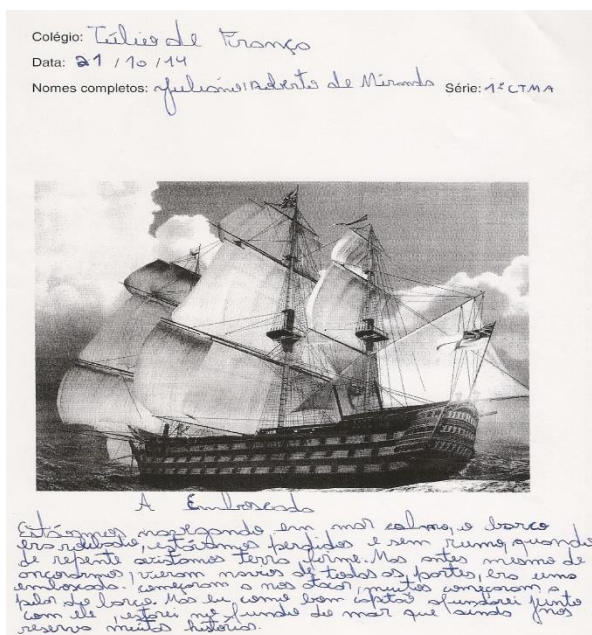 Colégio: Túlio de França
Data: 21 / 10 / 14
Nomes completos: Juliano Roberto de Miranda Série: 1º CTMA
A Emboscada
Estávamos navegando em mar calmo, o barco
era roubado, estávamos perdidos e sem rumo, quando
de repente avistamos terra firme. Mas antes mesmo de
ancorarmos, vieram navios de todas as partes, era uma
emboscada. começaram a nos atacar, muitos começaram a
pular do barco. Mas eu como bom capitão afundarei junto
com ele, estarei no fundo do mar que ainda nos
reserva muitas histórias.